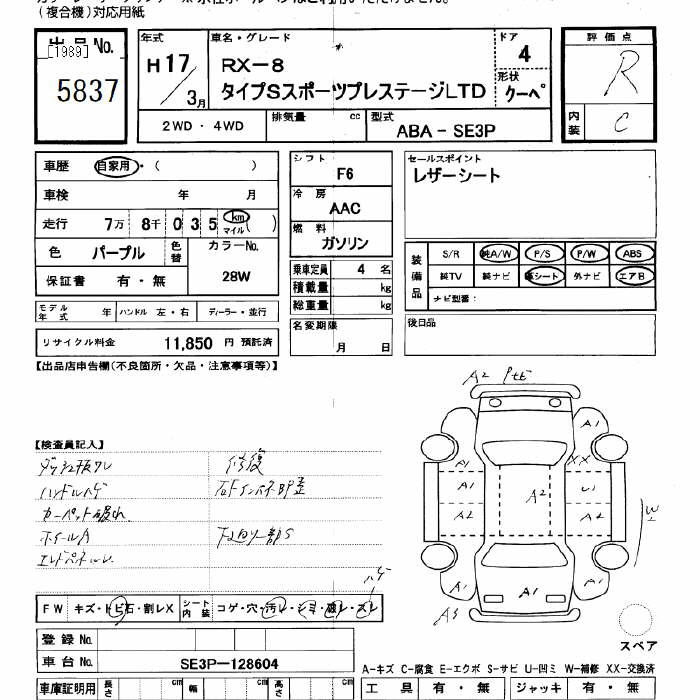 (複合機)対応用紙
出品 No.
[1989]
5837
年式
H 17 / 3月
車名・グレード
RX-8
タイプSスポーツプレステージLTD
ドア
4
形状
クーペ
評価点
R
内装
C
2WD・4WD
排気量 cc
型式
ABA-SE3P
車歴 自家用・( )
車検 年 月
走行 7万 8千 0 3 5 km マイル ( )
色 パープル 色替 カラーNo.
保証書 有・無 28W
モデル年式 年 ハンドル 左・右 ディーラー・並行
リサイクル料金 11,850 円 預託済
シフト
F6
冷房
AAC
燃料
ガソリン
乗車定員 4 名
積載量 kg
総重量 kg
名変期限
月 日
セールスポイント
レザーシート
装備品
S/R 純A/W P/S P/W ABS
純TV 純ナビ 革シート 外ナビ エアB
ナビ型番:
後日品
【出品店申告欄(不良箇所・欠品・注意事項等)】
【検査員記入】
ハンドルハゲ
カーペット破れ
ホイールA
修復
下回り一部S
ハゲ
FW キズ・トビ石・割レX シート内装 コゲ・穴・汚レ・シミ・破レ・スレ
登録 No.
車台 No. SE3P-128604
車庫証明用 長さ cm 幅 cm 高さ cm
A2
A1
A1
XX
A1
U1
A2
A2
A2
W
A1
A1
A1
A3
スペア
A-キズ C-腐食 E-エクボ S-サビ U-凹ミ W-補修 XX-交換済
工具 有・無 ジャッキ 有・無